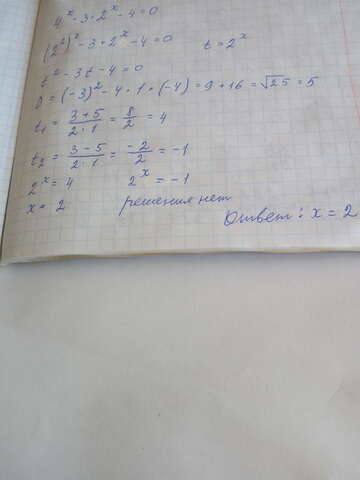 4^x - 3 · 2^x - 4 = 0
(2^2)^x - 3 · 2^x - 4 = 0 t = 2^x
t^2 - 3t - 4 = 0
D = (-3)^2 - 4 · 1 · (-4) = 9 + 16 = √25 = 5
t₁ = (3 + 5)/(2 · 1) = 8/2 = 4
t₂ = (3 - 5)/(2 · 1) = -2/2 = -1
2^x = 4 2^x = -1
x = 2 решения нет
Ответ: x = 2